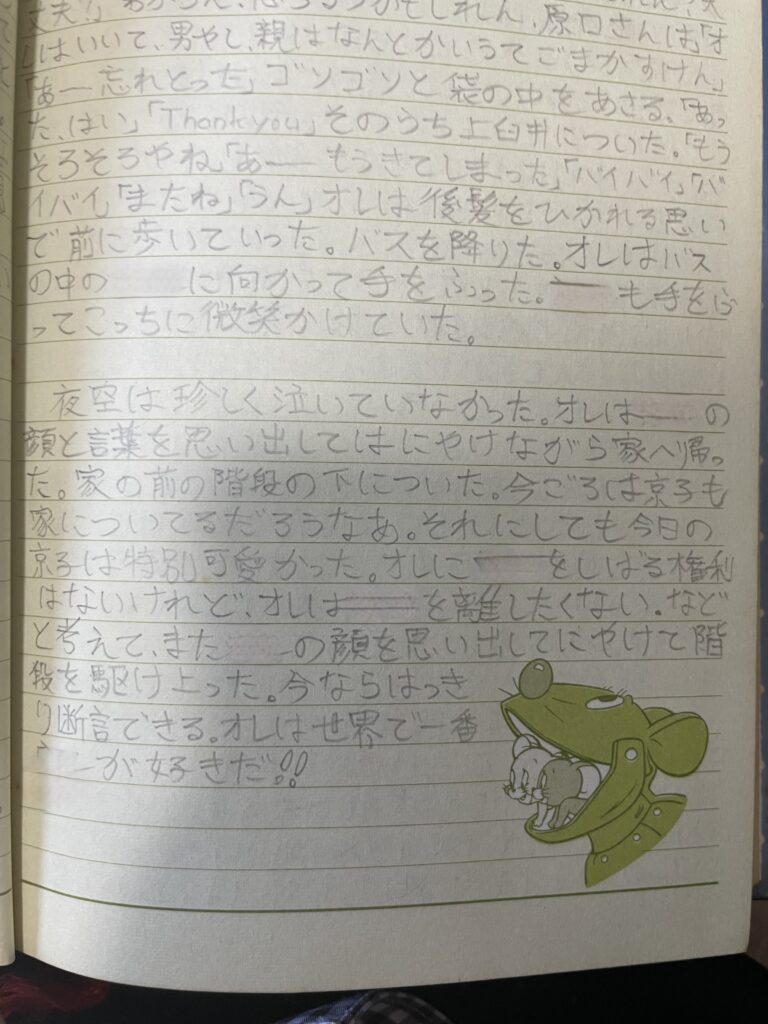 丈夫?」わからん、怒らすかもしれん、原口さんは」「オ
レはいいて、男やし、親はなんとかいうてごまかすけん」
「あー忘れとった」ゴソゴソと袋の中をあさる、「あっ
た、はい」「Thank you」そのうち上臼井についた。「もう
そろそろやね」「あー もうきてしまった」「バイバイ」「バ
イバイ」「またね」「うん」オレは後髪をひかれる思い
で前に歩いていった。バスを降りた。オレはバス
の中の に向かって手をふった。 も手をふ
ってこっちに微笑かけていた。
夜空は珍しく泣いていなかった。オレは の
顔と言葉を思い出してはにやけながら家へ帰っ
た。家の前の階段の下についた。今ごろは京子も
家についてるだろうなあ。それにしても今日の
京子は特別可愛かった。オレに をしばる権利
はないけれど、オレは を離したくない。など
と考えて、また の顔を思い出してにやけて階
段を駆け上った。今ならはっき
り断言できる。オレは世界で一番
が好きだ!!